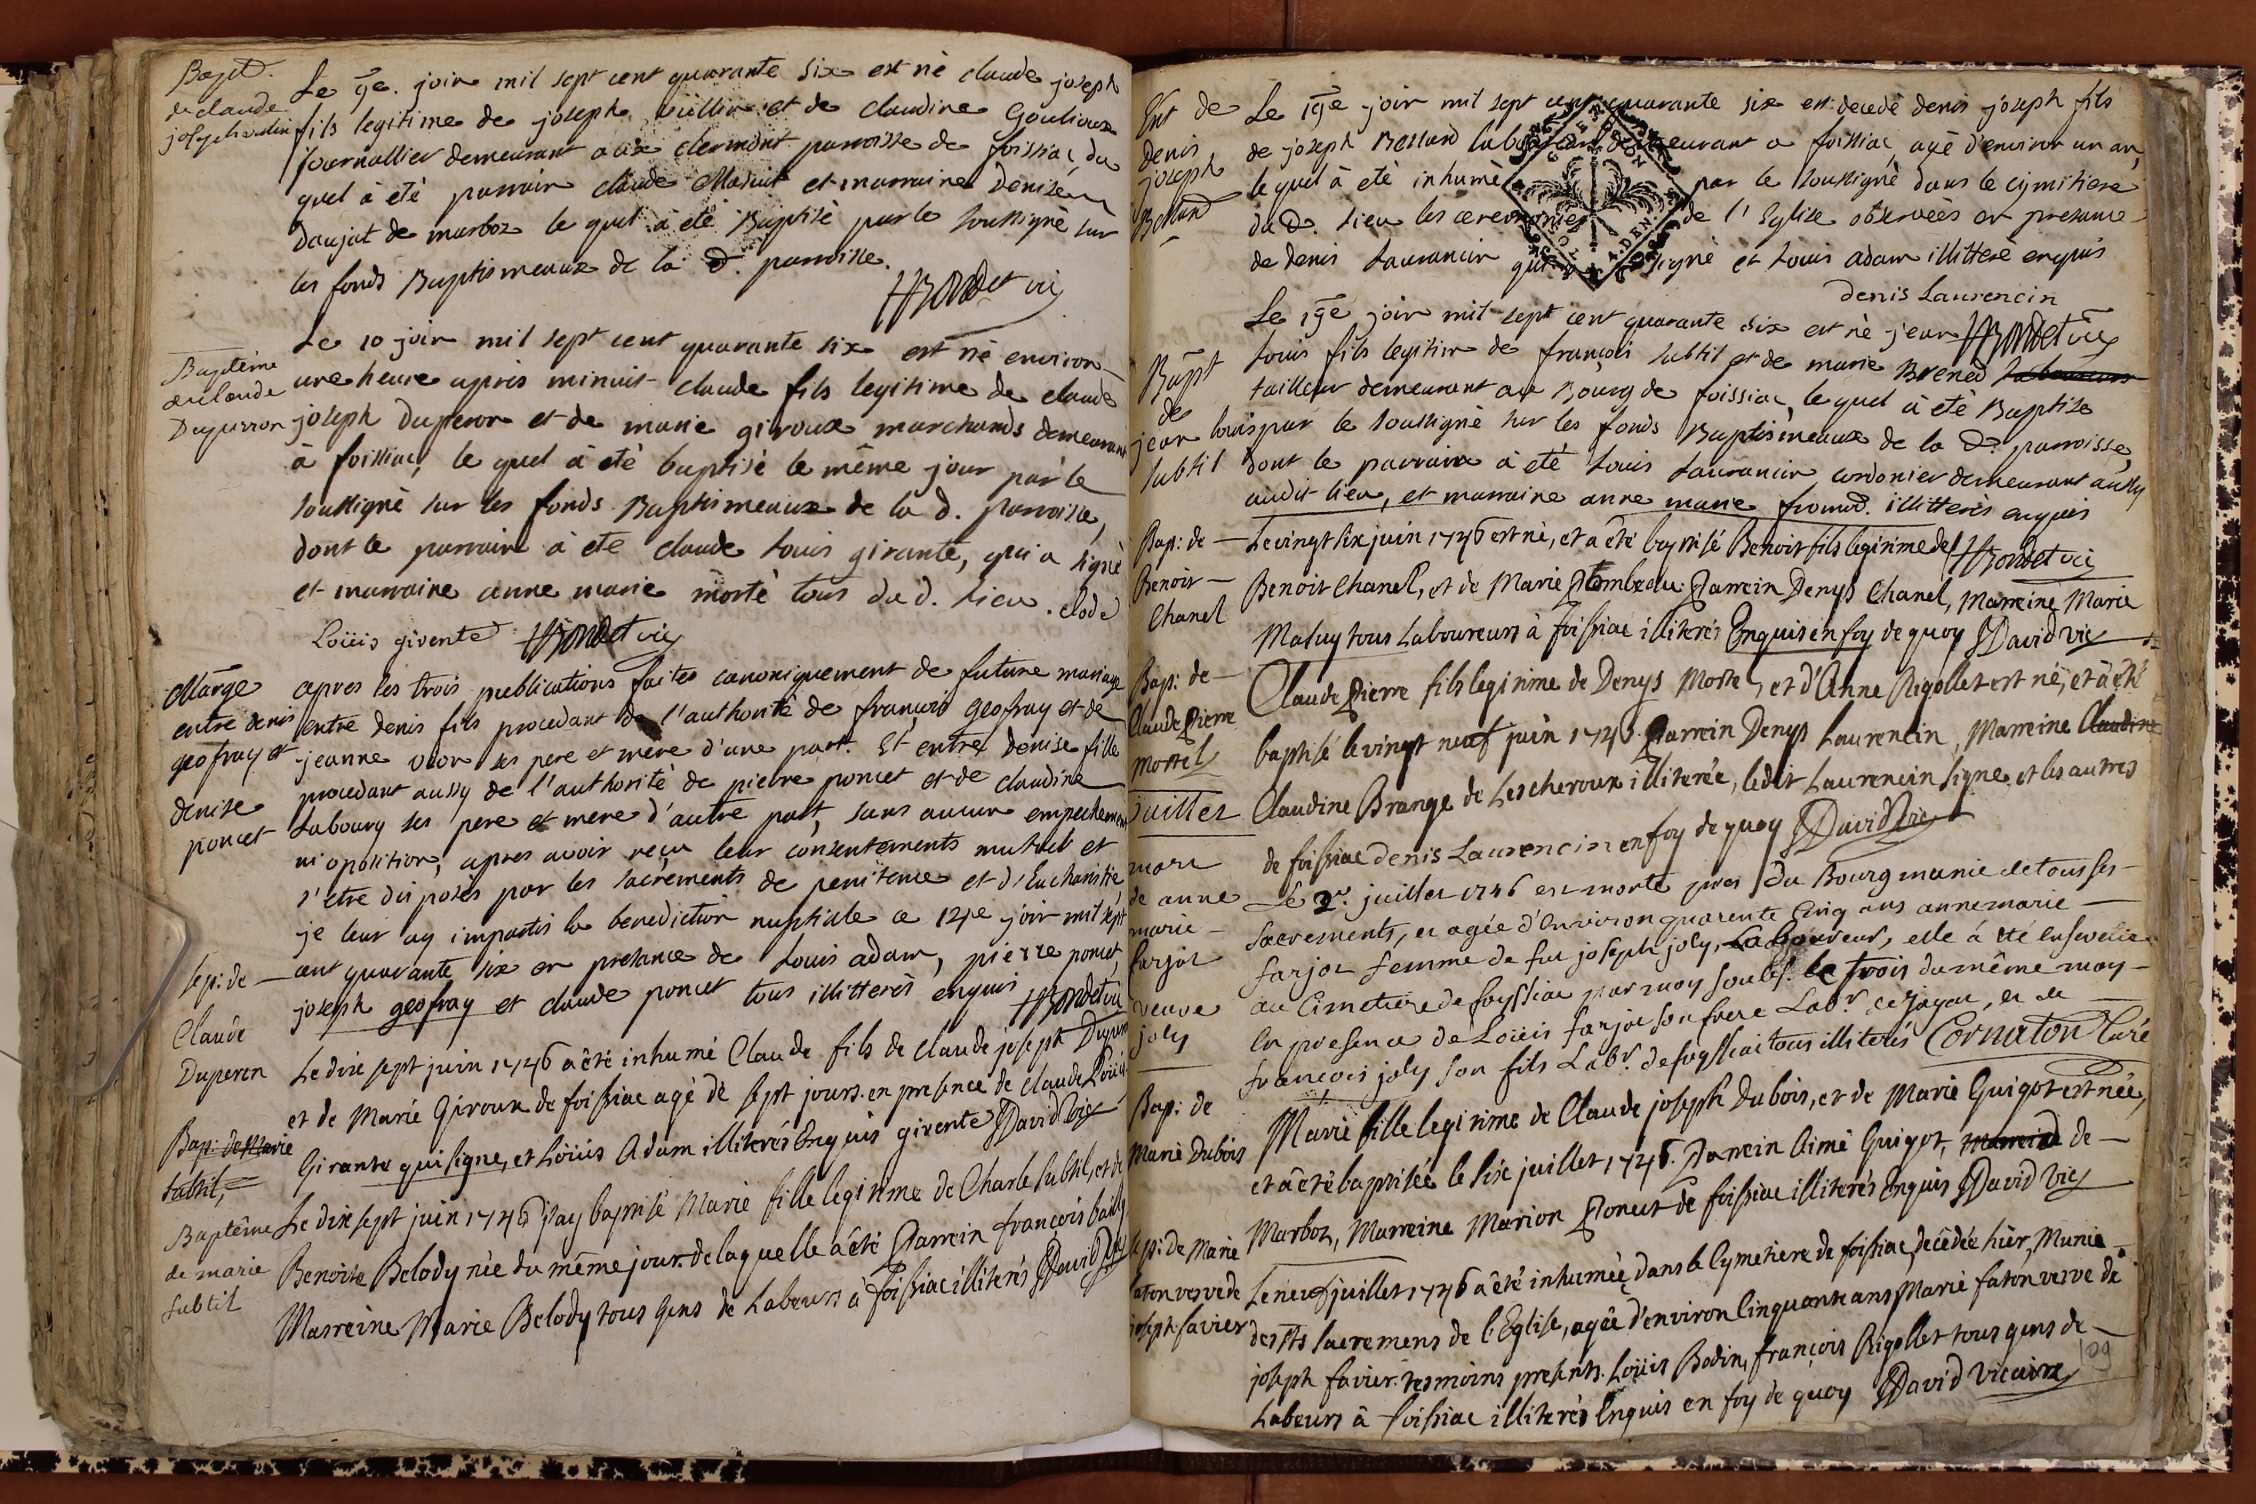 Bapt.
de claude
joseph
Le 9e. join mil sept cent quarante six est né claude joseph
fils legitime de joseph et de claudine Goulioux
journallier demeurant aux clermont parroisse de foissiac du
quel à eté parrain claude Maduit et marraine Denise
Daujat de marboz le quel à eté Baptisé par le soussigné sur
les fonds Baptismeaux de la d. parroisse.
HBondet vic
Baptême
de claude
Duperron
Le 10 join mil sept cent quarante six est né environ
une heure apres minuit claude fils legitime de claude
joseph Duperon et de marie giroux marchands demeurant
à foissiac, le quel à eté baptisé le même jour par le
soussigné sur les fonds Baptismeaux de la d. parroisse,
dont le parrain à eté claude Louis girante, qui a signé
et marraine anne marie morté tous du d. Lieu. clode
Loüis girente HBondet vic
Marge
entre denis
geofray et
denise
poncet
apres les trois publications faites canoniquement de future mariage
entre denis fils procedant de l'authorité de françois geofray et de
jeanne vior ses pere et mere d'une part. Et entre denise fille
procedant aussy de l'authorité de pierre poncet et de claudine
Labourg ses pere et mere d'autre part, sans aucun empechement
ni oposition, apres avoir reçu leur consentements mutuel et
s'etre disposés par les sacrements de penitence et d'Eucharistie
je leur ay impartis la benediction nuptiale ce 14e join mil sept
cent quarante six en presance de Louis adam, pierre poncet,
joseph geofray et claude poncet tous illitterés enquis HBondet vic
sep: de
Claude
Duperon
Le dix sept juin 1746 a êté inhumé Claude fils de claude joseph Duperon
et de Marie Giroux de foissiac agé de sept jours. en presence de claude Loüis
Girante qui signe, et Loüis Adam illiterés Enquis girente JDavid vic
Bap: de Marie
subtil,
Baptême
de marie
subtil
Le dix sept juin 1746 j'ay baptisé Marie fille legitime de Charle Subtil, et de
Benoite Belody née du même jour. de laquelle a êté Parrein françois bailly
Marreine Marie Belody tous gens de Labeurs à foissiac illiterés JDavid Vic
Ent de
Denis
joseph
Bessard
Le 19e join mil sept cent quarante six est decedé denis joseph fils
de joseph Bessard laboureur demeurant a foissiac, agé d'environ un an,
le quel à eté inhumé par le soussigné dans le cymitiere
du d. Lieu les ceremonies de l'Eglise observéès en presance
de denis Laurancin qui signé et Louis adam illitteré enquis
denis Laurencin
HBondet vic
Bapt
de
jean louis
subtil
Le 19e join mil sept cent quarante six est né jean
Louis fils legitim de françois subtil et de marie Brened
tailleur demeurant au Bourg de foissiac, le quel à eté Baptisé
par le soussigné sur les fonds Baptismeaux de la d. parroisse,
dont le parrain à eté Louis Laurancin cordonier demeurant aussy
audit lieu, et marraine anne marie fromd. illitterés enquis
HBondet vic
Bap: de
Benoit
Chanel
Le vingt six juin 1746 est né, et a êté baptisé Benoit fils legitime de
Benoit Chanel, et de Marie Plombeau. Parrein Denys Chanel, Marreine Marie
Maluy tous Laboureurs à foissiac illiterés Enquis en foy de quoy JDavid vic
Bap: de
Claude Pierre
Mortel
Claude Pierre fils legitime de Denys Mortel, et d'Anne Rigollet est né, et a êté
baptisé le vingt neuf juin 1746. Parrein Denys Laurencin, Marreine Claudine
Claudine Brange de Lescheroux illiterée, ledit Laurencin signe, et les autres
de foissiac denis Laurencin en foy de quoy JDavid Vic
juillet
mort
de anne
marie
farjot
veuve
joly
Le 2r. juillet 1746 est morte pres du Bourg munie de tous ses
sacrements, et agée d'environ quarente Cinq ans annemarie
farjot femme de feu joseph joly, Laboureur, elle á été ensevelie
au Cimetiere de foyssiac par moy soubs. le trois du même moy
En presence de Loüis farjot son frere Labr. de jayat, et de
françois joly son fils Labr. de foyssiac tous illiterés Cornaton Curé
Bap: de
Marie Dubois
Marie fille legitime de Claude joseph Dubois, et de Marie Guigot est née,
et a êté baptisée le six juillet 1746. Parrein Aimé Guigot, de
Marboz, Marreine Marion Poncet de foissiac illiterés Enquis JDavid Vic
sep: de Marie
faton verve de
joseph favier
Le neuf juillet 1746 a êté inhumée dans le Cymetiere de foissiac, decêdée hier, Munie
des sts Sacremens de l'Eglise, agée d'environ Cinquante ans Marie faton verve de
joseph favier. tesmoins presents. Loüis Bodin, françois Rigollet tous gens de
Labeurs à foissiac illiterés Enquis en foy de quoy JDavid Vicaire
109